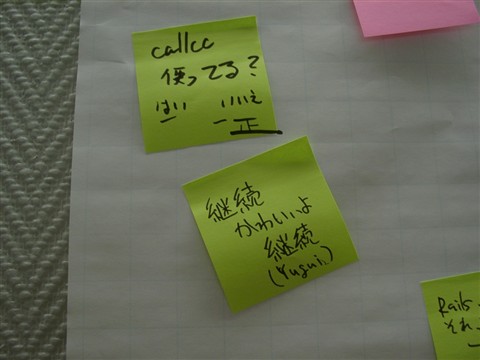 callcc
使ってる?
はい いいえ
一 一正
継続
かわいいよ
継続
(Yugui)
Rails
それ